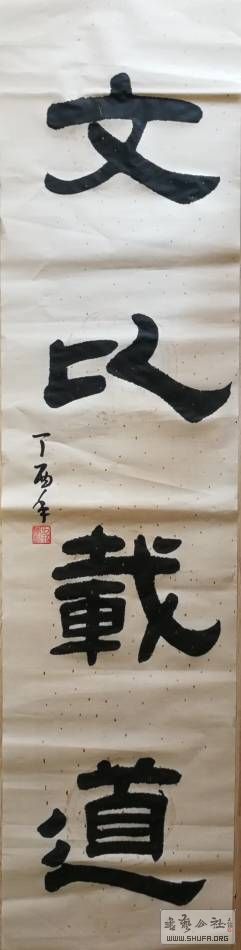 文以載道
丁酉年
書藝公社
WWW.SHUFA.ORG